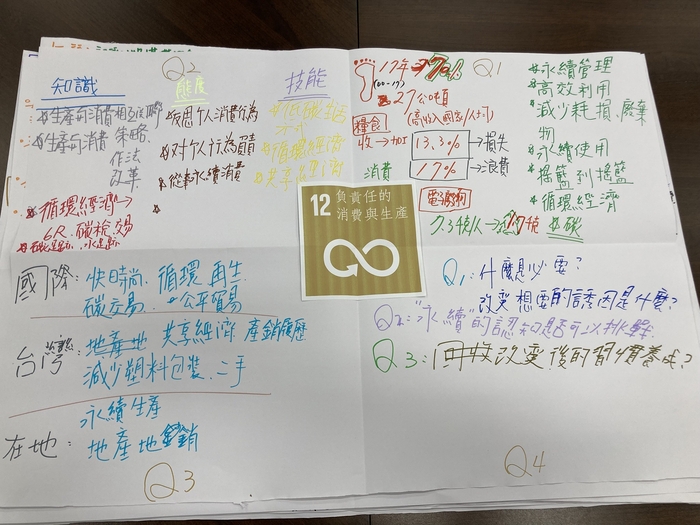 Q2
知識
生產與消費相互依賴
生產與消費 策略、
作法
改革
循環經濟→
6R、碳稅、交易
態度
反思个人消費行為
对个人行為負責
從事永續消費
技能
低碳生活
方式
循環經濟
共享經濟
Q1
17年 70%
(00-17)
27公噸
糧食
收→加工
13.3% →損失
消費
17% →浪費
電子廢物
7.3千克/人→1.7千克
永續管理
高效利用
減少耗損、廢棄
物
永續使用
搖籃到搖籃
循環經濟
碳
12 負責任的
消費與生產
國際:快時尚、循環再生
碳交易、公平貿易
台灣:地產地 共享經濟 產銷履歷
減少塑料包裝、二手
永續生產
在地:地產地銷
Q3
Q1:什麼是必要?
改变想要的誘因是什麼?
Q2:"永續"的認知是否可以挑
Q3:回收改变後的習慣養成?
Q4